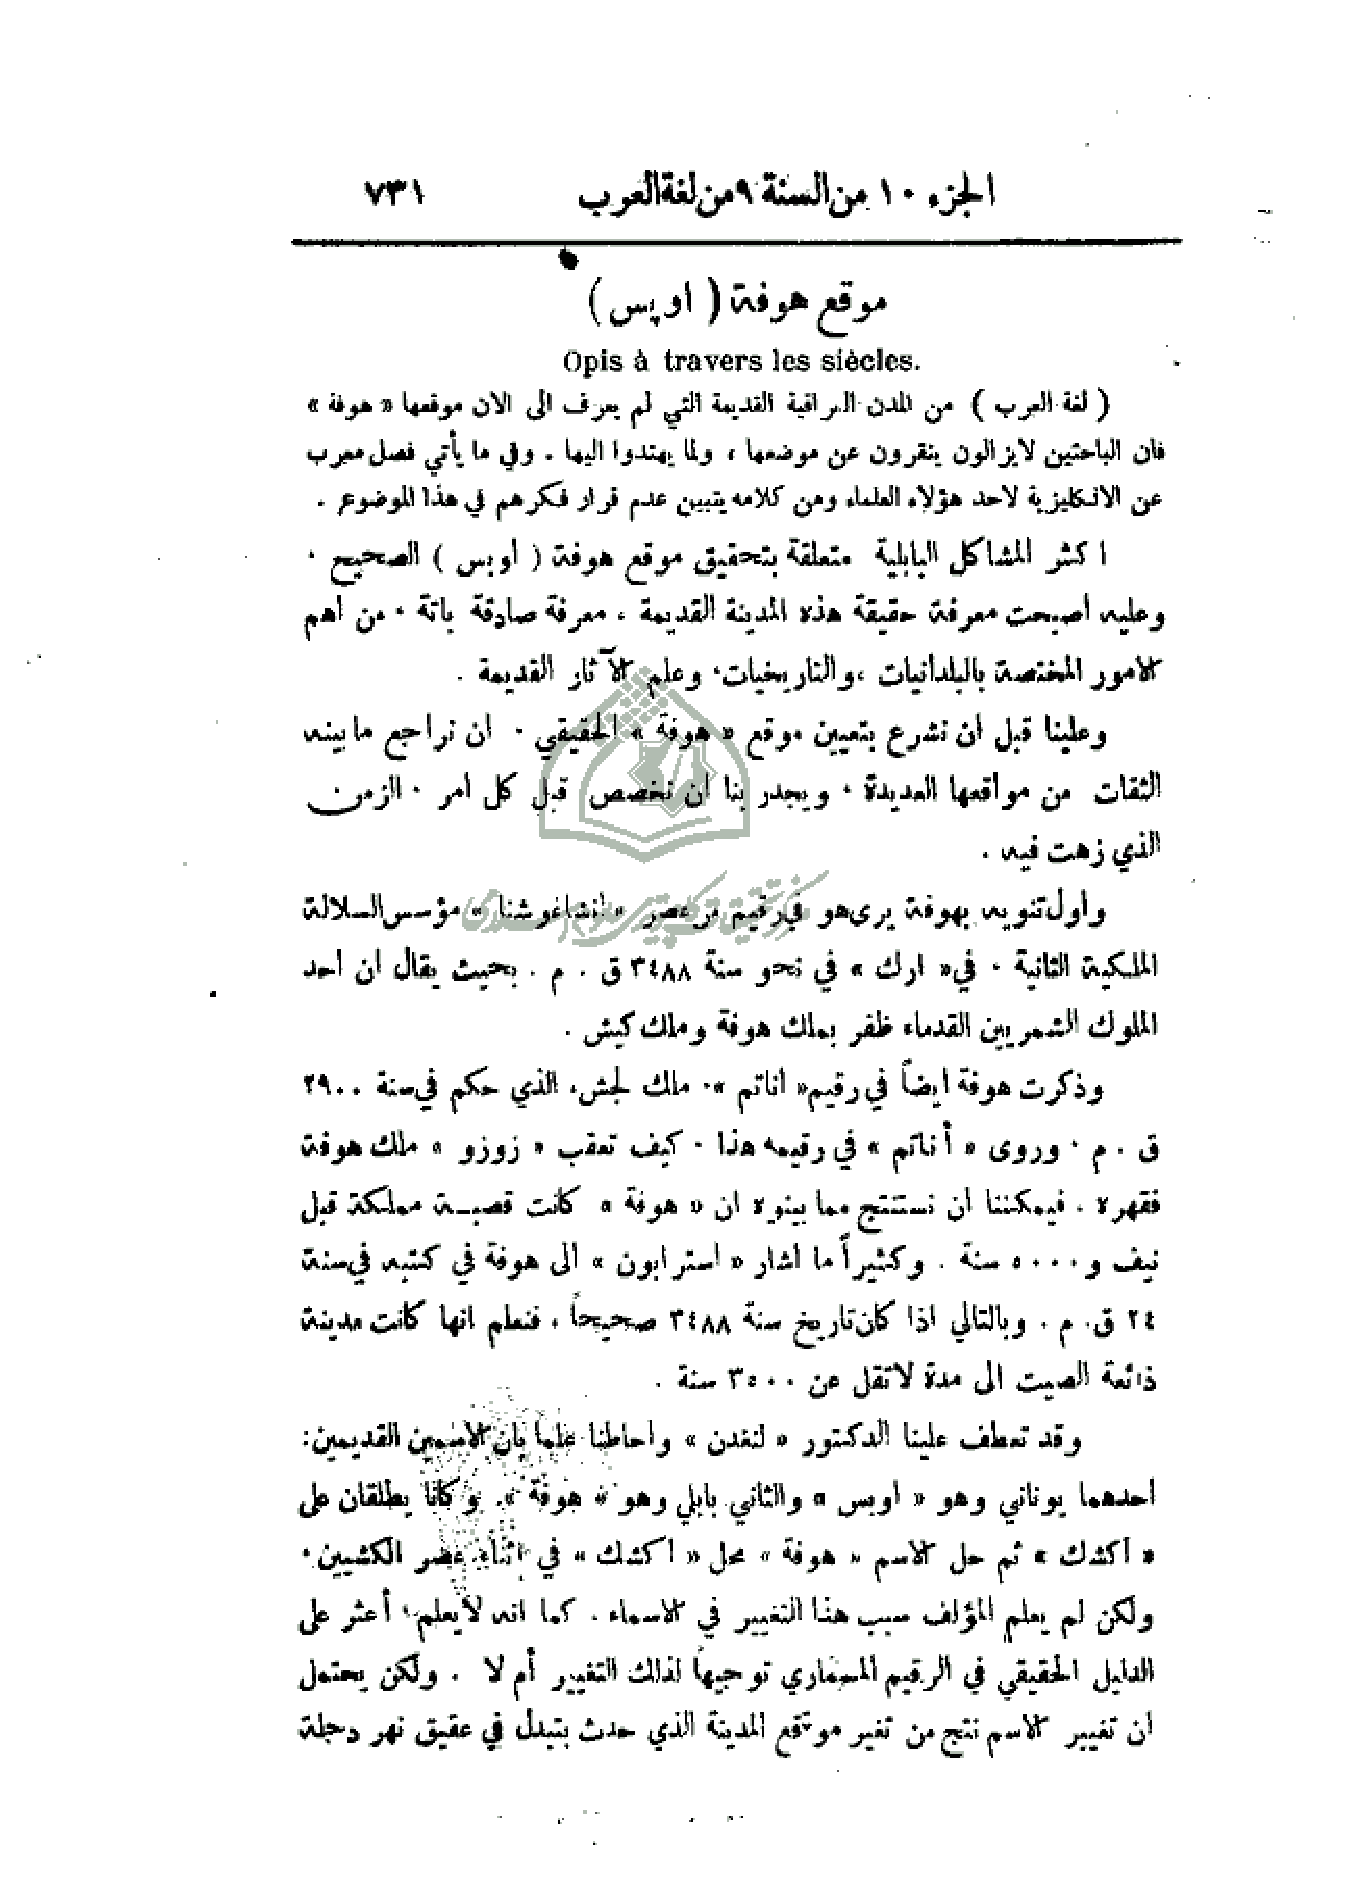 الجزء ١٠ من السنة ٩ من لغة العرب ٧٣١
موقع هوفة ( اوپس )
Opis à travers les siècles.
( لغة العرب ) من المدن العراقية القديمة التي لم يعرف الى الان موقعها « هوفة »
فان الباحثين لايزالون ينقرون عن موضعها ، ولما يهتدوا اليها . وفي ما يأتي فصل معرب
عن الانكليزية لاحد هؤلاء العلماء ومن كلامه يتبين عدم قرار فكرهم في هذا الموضوع .
اكثر المشاكل البابلية متعلقة بتحقيق موقع هوفة ( أوبس ) الصحيح .
وعليه أصبحت معرفة حقيقة هذه المدينة القديمة ، معرفة صادقة باتة . من أهم
الامور المختصة بالبلدانيات ، والتاريخيات . وعلم الآثار القديمة .
وعلينا قبل أن نشرع بتعيين موقع « هوفة » الحقيقي . ان نراجع ما بينه
الثقات من مواقعها العديدة . ويجدر بنا أن نخصص قبل كل أمر . الزمن
الذي زهت فيه .
وأول تنويه بهوفة يرى هو في رقيم من عصر « أنشاغوشنا » مؤسس السلالة
الملكية الثانية . في « ارك » في نحو سنة ٣٤٨٨ ق . م . بحيث يقال أن أحد
الملوك الشمريين القدماء ظفر بملك هوفة وملك كيش .
وذكرت هوفة أيضاً في رقيم « أناتم » . ملك لجش ، الذي حكم في سنة ٢٩٠٠
ق . م . وروى « أناتم » في رقيمه هذا . كيف تعقب « زوزو » ملك هوفة
فقهره . فيمكننا ان نستنتج مما بينوه ان « هوفة » كانت قصبة مملكة قبل
نيف و ٥٠٠٠ سنة . وكثيراً ما أشار « استرابون » الى هوفة في كتبه في سنة
٢٤ ق. م . وبالتالي اذا كان تاريخ سنة ٣٤٨٨ صحيحاً ، فنعلم انها كانت مدينة
ذائعة الصيت الى مدة لاتقل عن ٣٥٠٠ سنة .
وقد تعطف علينا الدكتور « لنغدن » وأحاطنا علماً بان الاسمين القديمين :
أحدهما يوناني وهو « أوبس » والثاني بابلي وهو « هوفة » . وكانا يطلقان على
« أكشك » ثم حل الاسم « هوفة » محل « أكشك » في اثناء عصر الكشيين .
ولكن لم يعلم المؤلف سبب هذا التغيير في الاسماء . كما انه لايعلم ؛ أعثر على
الدليل الحقيقي في الرقيم المسماري توجيهاً لذلك التغيير أم لا . ولكن يحتمل
ان تغيير الاسم نتج من تغير موقع المدينة الذي حدث بتبدل في عقيق نهر دجلة